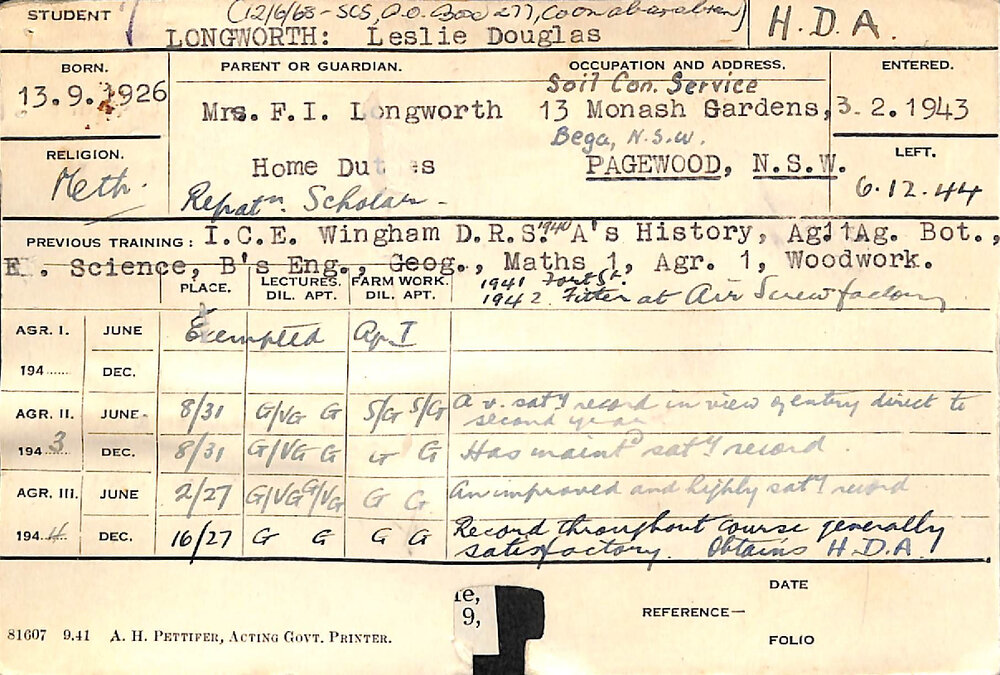 STUDENT (12/6/68 - SCS, P.O. Box 277, Coonabarabran) H.D.A.
LONGWORTH: Leslie Douglas
BORN. PARENT OR GUARDIAN. OCCUPATION AND ADDRESS. ENTERED.
Soil Con. Service
13.9.1926 Mrs. F.I. Longworth 13 Monash Gardens, 3.2.1943
Bega, N.S.W.
RELIGION. Home Duties PAGEWOOD, N.S.W. LEFT.
Meth. Repatn. Scholar - 6.12.44
PREVIOUS TRAINING: I.C.E. Wingham D.R.S. 1940 A's History, Ag. Bot.,
El. Science, B's Eng., Geog., Maths 1, Agr. 1, Woodwork.
PLACE. LECTURES. FARM WORK. 1941 Fort St.
DIL. APT. DIL. APT. 1942 Fitter at Air Screw factory
AGR. I. JUNE Exempted Ag I
194 DEC.
AGR. II. JUNE 8/31 G/VG G S/G S/G A v. saty record in view of entry direct to
second year
1943 DEC. 8/31 G/VG G G G Has maintd saty record.
AGR. III. JUNE 2/27 G/VG G/VG G G An improved and highly saty record
1944 DEC. 16/27 G G G G Record throughout course generally
satisfactory. Obtains H.D.A.
DATE
REFERENCE—
FOLIO
le,
9,
81607 9.41 A. H. PETTIFER, ACTING GOVT. PRINTER.